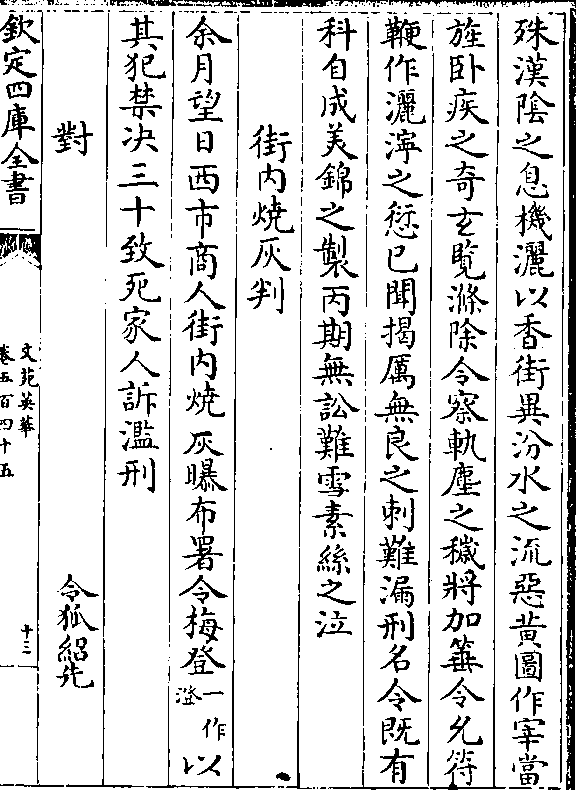 殊漢陰之息機灑以香街異汾水之流惡黄圖作宰當
旌卧疾之奇玄覽滌除令察軌塵之穢將加箠令允符
鞭作灑濘之愆已聞揭厲無良之刺難漏刑名令既有
科自成美錦之製丙期無訟難雪素絲之泣
街内燒灰判
余月望日西市商人街内燒灰曝布署令梅登一作澄以
其犯禁决三十致死家人訴濫刑
對
令狐紹先
欽定四庫全書
文苑英華
卷五百四十五
十三